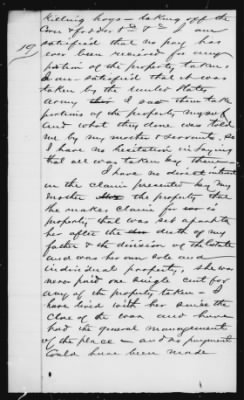 killing hogs - taking off the
Corn & fodder &c &c I am
19
satisfied that no pay has
ever been received for any
portion of the property taken.
I am satisfied that it was
taken by the United States
army I saw them take
portions of the property myself
and what they done was told
me by my mother & servants, so
I have no hesitation in saying
that all was taken by them -
I have no direct interest
in the claim presented by my
mother the property that
she makes claim for is
property that was set apart to
her after the death of my
father & the division of the Estate
and was her own sole and
individual property, she was
never paid one single cent for
any of the property taken - I
have lived with her since the
close of the war and have
had the general management
of the place - and no payment
could have been made